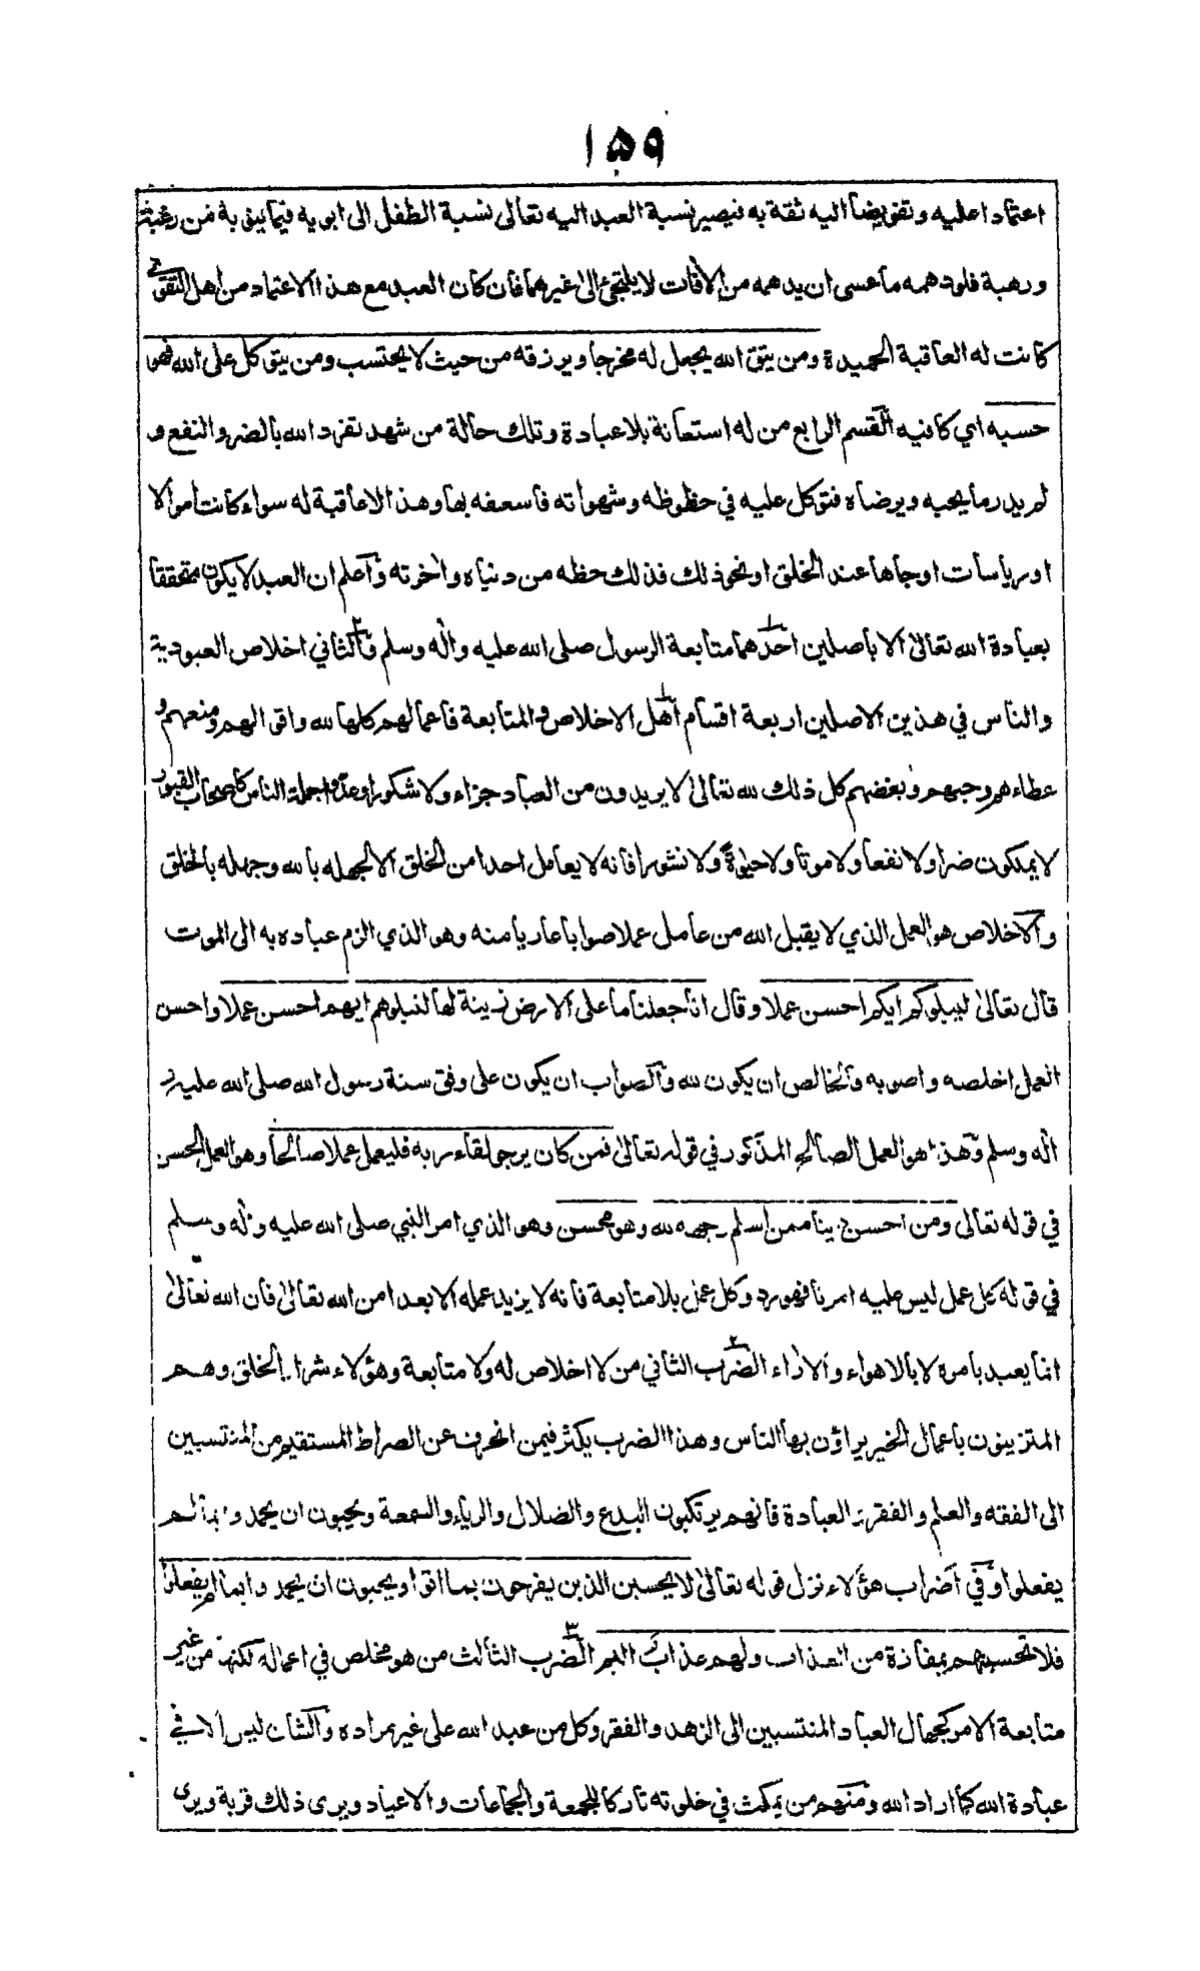 ١٥٩
اعتمادا عليه وتفويضا اليه ثقة به فيصير نسبة العبد اليه تعالى نسبة الطفل الى ابويه فيما ينوبه من رغبة
ورهبة فلو دهمه ما عسى ان يدهمه من الآفات لا يلتجئ الى غيرهما فان كان العبد مع هذا الاعتماد من اهل التقوى
كانت له العاقبة الحميدة ومن يتق الله يجعل له مخرجا ويرزقه من حيث لا يحتسب ومن يتوكل على الله فهو
حسبه اي كافيه القسم الرابع من له استعانة بلا عبادة وتلك حالة من شهد تفرد الله بالضر والنفع و
لم يدر ما يحبه ويرضاه فتوكل عليه في حظوظه وشهواته فاسعفه بها وهذا لا عاقبة له سواء كانت اموالا
او رياسات او جاها عند الخلق او نحو ذلك فذلك حظه من دنياه واخرته واعلم ان العبد لا يكون متحققا
بعبادة الله تعالى الا باصلين احدهما متابعة الرسول صلى الله عليه وآله وسلم والثاني اخلاص العبودية
والناس في هذين الاصلين اربعة اقسام اهل الاخلاص والمتابعة فاعمالهم كلها لله واقوالهم ومنعهم و
عطاءهم وحبهم وبغضهم كل ذلك لله تعالى لا يريدون من العباد جزاء ولا شكورا وعدوا جملة الناس كاصحاب القبور
لا يملكون ضرا ولا نفعا ولا موتا ولا حيوة ولا نشورا فانه لا يعامل احدا من الخلق الا لجهله بالله وجهله بالخلق
والاخلاص هو العمل الذي لا يقبل الله من عامل عملا صوابا عاريا منه وهو الذي الزم عباده به الى الموت
قال تعالى ليبلوكم ايكم احسن عملا وقال انا جعلنا ما على الارض زينة لها لنبلوهم ايهم احسن عملا واحسن
العمل اخلصه واصوبه والخالص ان يكون لله والصواب ان يكون على وفق سنة رسول الله صلى الله عليه و
آله وسلم وهذا هو العمل الصالح المذكور في قوله تعالى فمن كان يرجو لقاء ربه فليعمل عملا صالحا وهو العمل الحسن
في قوله تعالى ومن احسن دينا ممن اسلم وجهه لله وهو محسن وهو الذي امر النبي صلى الله عليه وآله وسلم
في قوله كل عمل ليس عليه امرنا فهو رد وكل عمل بلا متابعة فانه لا يزيد عمله الا بعدا من الله تعالى فان الله تعالى
انما يعبد بامره لا بالاهواء والآراء الضرب الثاني من لا اخلاص له ولا متابعة وهؤلاء شرار الخلق وهم
المتزينون باعمال الخير يراؤن بها الناس وهذا الضرب يكثر فيمن انحرف عن الصراط المستقيم من المنتسبين
الى الفقه والعلم والفقر والعبادة فانهم يرتكبون البدع والضلال والرياء والسمعة ويحبون ان يحمدوا بما لم
يفعلوا وفي اضراب هؤلاء نزل قوله تعالى لا يحسبن الذين يفرحون بما اتوا ويحبون ان يحمدوا بما لم يفعلوا
فلا تحسبنهم بمفازة من العذاب ولهم عذاب اليم الضرب الثالث من هو مخلص في اعماله لكنها من غير
متابعة الامر كجهال العباد المنتسبين الى الزهد والفقر وكل من عبد الله على غير مراده والشان ليس الا في
عبادة الله كما اراد الله ومنهم من يمكث في خلوته تاركا للجمعة والجماعات والاعياد ويرى ذلك قربة ويرى